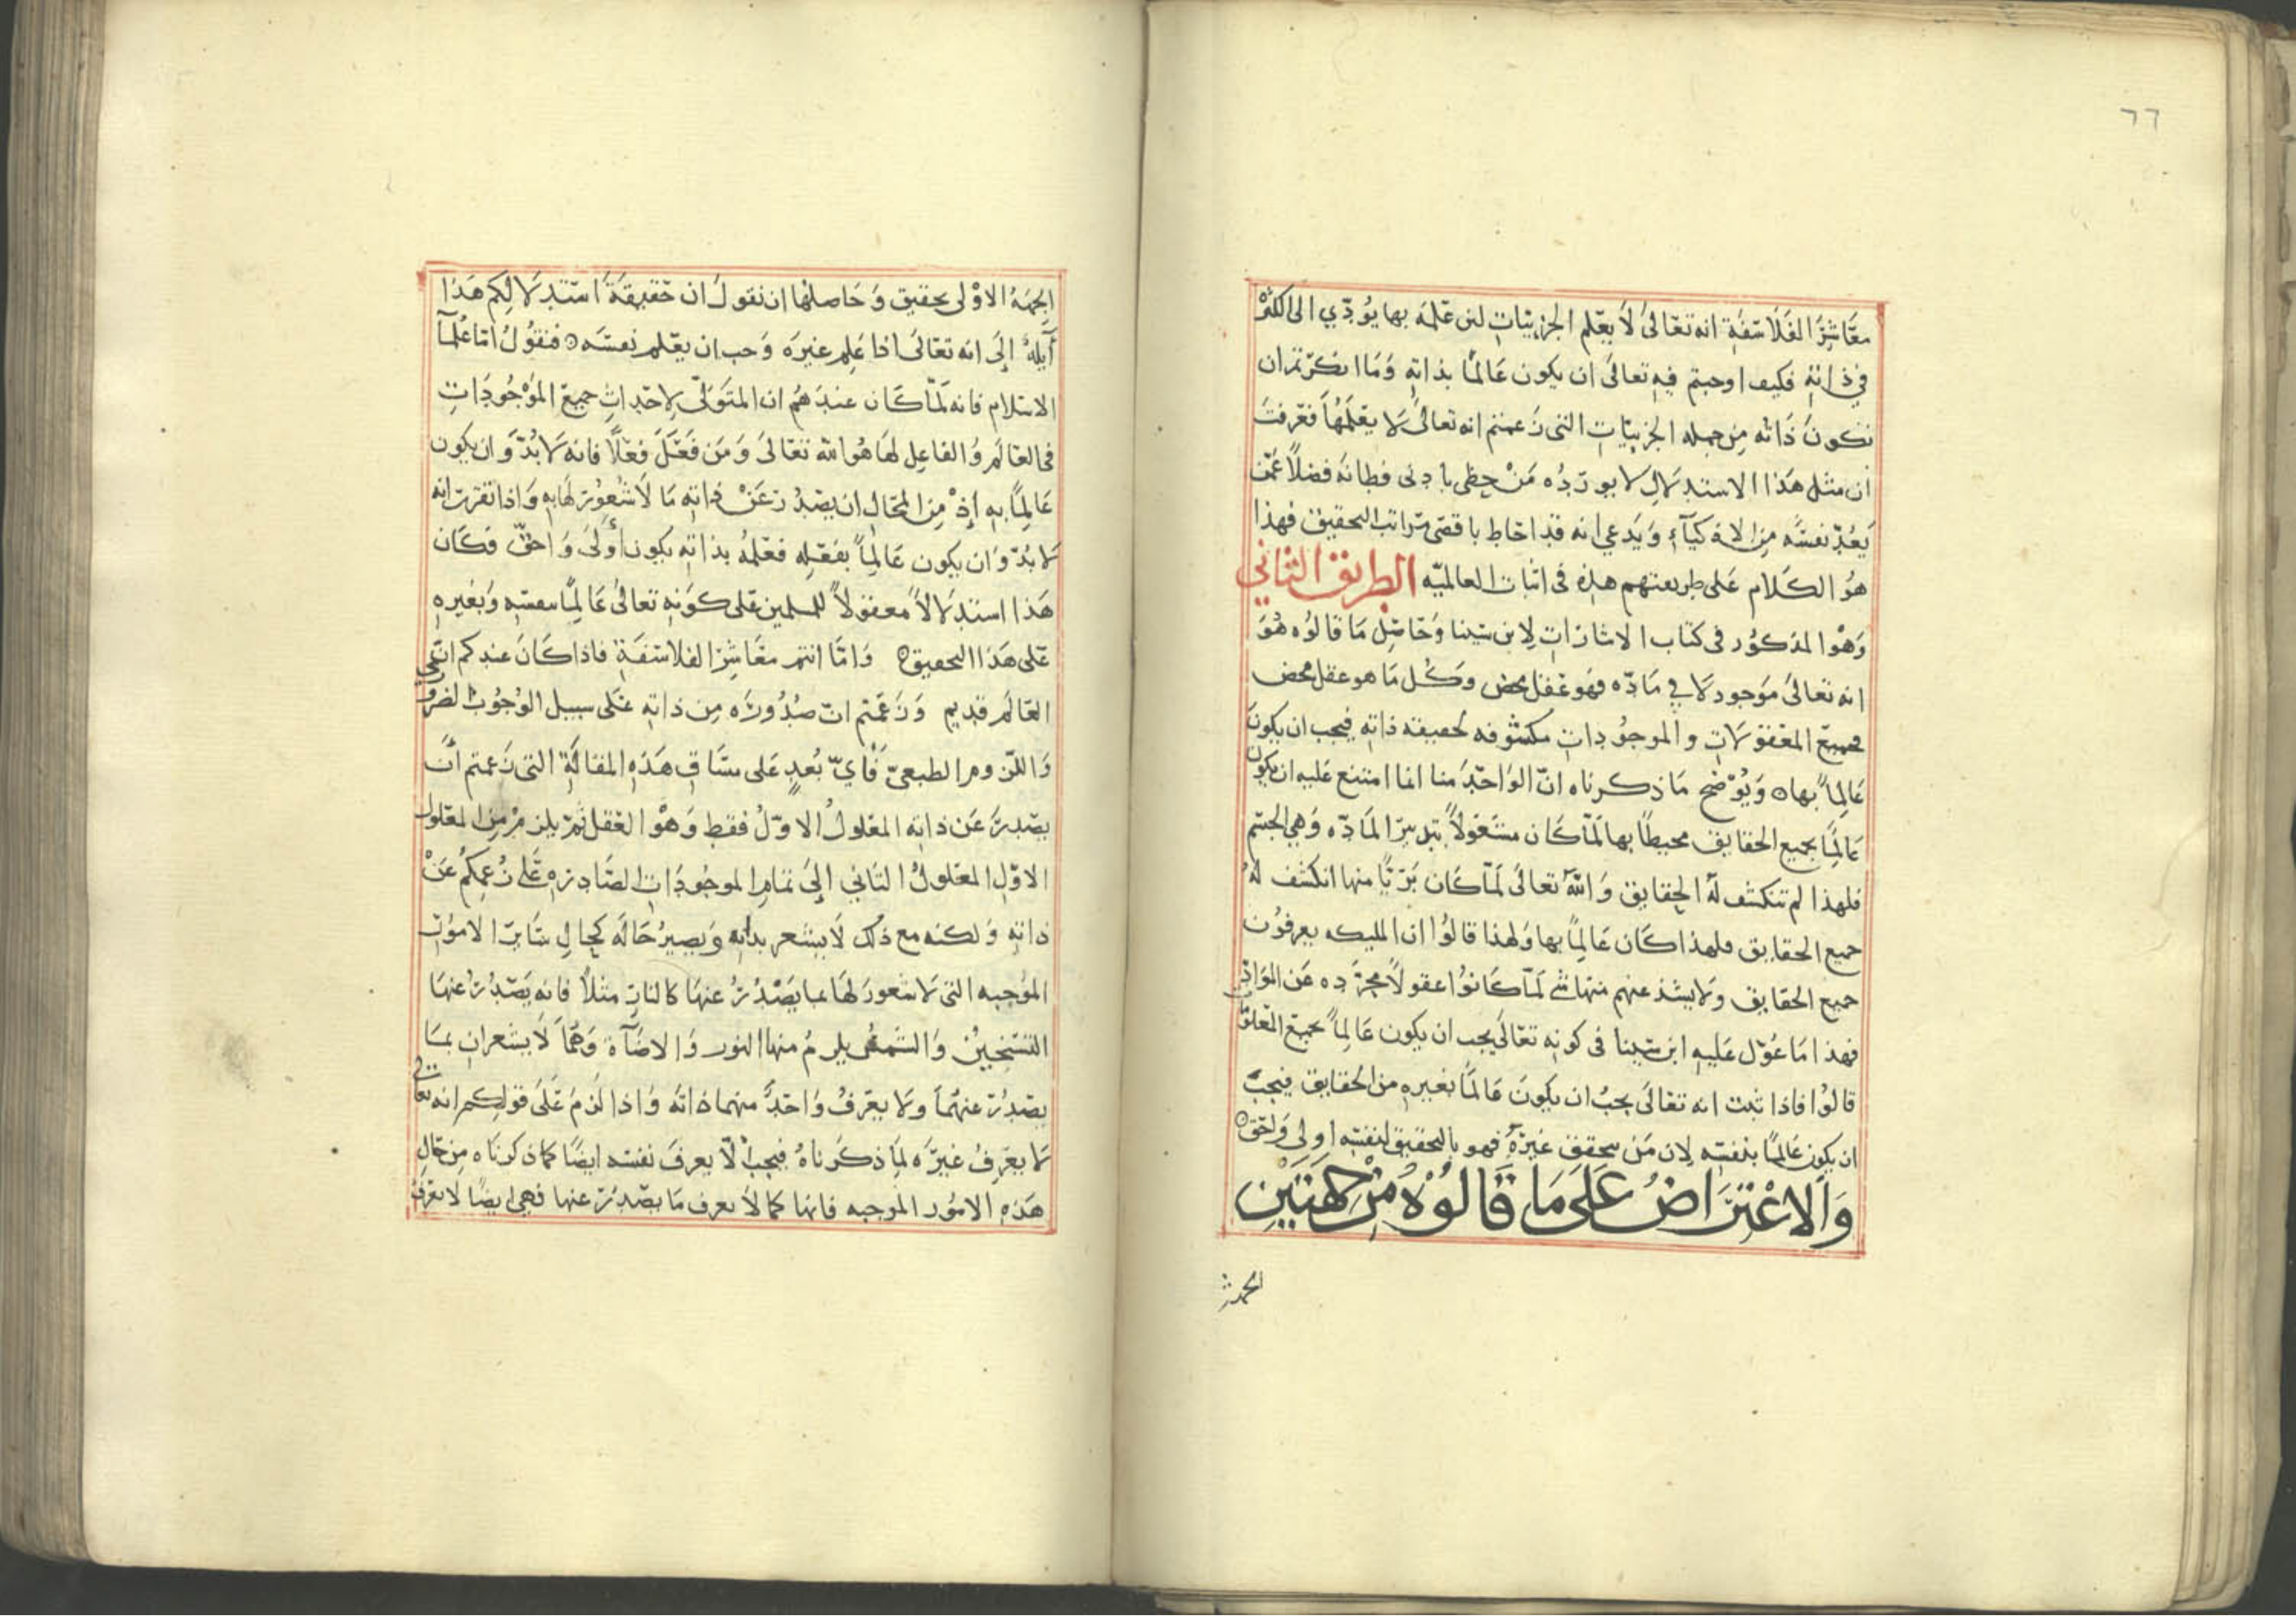 ٦٦
معاشر الفلاسفة انه تعالى لا يعلم الجزييات لان علمه بها يؤدي الى الكثرة
في ذاته فكيف اوجبتم فيه تعالى ان يكون عالما بذاته وما انكرتم ان
تكون ذاته من جمله الجزييات التى زعمتم انه تعالى لا يعلمها فعرفت
ان مثل هذا الاستدلال لا يورده من حظى بادنى فطانة فضلا عمن
يعد نفسه من الاذكياء ويدعي انه قد احاط باقصى مراتب التحقيق فهذا
هو الكلام على طريقتهم هذه فى اثبات العالميه الطريق الثاني
وهو المذكور فى كتاب الاشارات لابن سينا وحاصل ما قالوه هو
انه تعالى موجود لا في ماده فهو عقل محض وكل ما هو عقل محض
فجميع المعقولات والموجودات مكشوفه لحقيقه ذاته فيجب ان يكون
عالما بها ويوضح ما ذكرناه ان الواحد منا انما امتنع عليه ان يكون
عالما بجميع الحقايق محيطا بها لما كان مشغولا بتدبير الماده وهي الجسم
فلهذا لم تنكشف له الحقايق والله تعالى لما كان بريا منها انكشف له
جميع الحقايق فلهذا كان عالما بها ولهذا قالوا ان المليكه يعرفون
جميع الحقايق ولا يشذ عنهم منها شي لما كانوا عقولا مجرده عن المواد
فهذا ما عول عليه ابن سينا فى كونه تعالى يجب ان يكون عالما بجميع
قالوا فاذا ثبت انه تعالى يجب ان يكون عالما بغيره من الحقايق فيجب
ان يكون عالما بنفسه لان من تحقق غيره فهو بالتحقيق لنفسه اولى واحق
والاعتراض على ما قالوه من جهتين
الجهة الاولى تحقيق وحاصلها ان نقول ان حقيقة استدلالكم هذا
آيلة الى انه تعالى اذا علم غيره وجب ان يعلم نفسه فنقول اما علمآ
الاسلام فانه لما كان عندهم ان المتولى لاحداث جميع الموجودات
فى العالم والفاعل لها هو الله تعالى ومن فعل فعلا فانه لا بد وان يكون
عالما به اذ من المحال ان يصدر عن ذاته ما لا شعور لها به واذا تقرر انه
لا بد وان يكون عالما بفعله فعلمه بذاته يكون أولى واحق فكان
هذا استدلالا معقولا للمسلمين على كونه تعالى عالما بنفسه وبغيره
على هذا التحقيق واما انتم معاشر الفلاسفة فاذا كان عندكم ان
العالم قديم وزعمتم ان صدوره من ذاته على سبيل الوجوب الضرورى
واللزوم الطبعي فأي بعد على مساق هذه المقالة التى زعمتم أن
يصدر عن ذاته المعلول الاول فقط وهو العقل ثم يلزم من المعلول
الاول المعلول الثاني إلى تمام الموجودات الصادره على زعمكم عن
ذاته ولكنه مع ذلك لا يشعر بذاته ويصير حاله كحال ساير الامور
الموجبه التى لا شعور لها بما يصدر عنها كالنار مثلا فانه يصدر عنها
التسخين والشمس يلزم منها النور والاضآة وهما لا يشعران بما
يصدر عنهما ولا يعرف واحد منهما ذاته واذا لزم على قولكم انه تعالى
لا يعرف غيره لما ذكرناه فيجب ألا يعرف نفسه ايضا كما ذكرناه من حال
هذه الامور الموجبه فانها كما لا تعرف ما يصدر عنها فهي ايضا لا تعرف